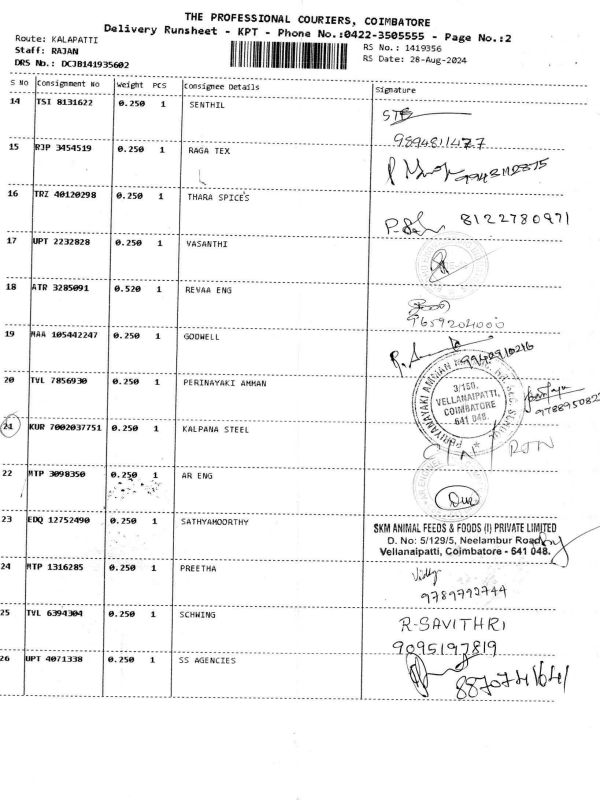 THE PROFESSIONAL COURIERS, COIMBATORE
Delivery Runsheet - KPT - Phone No.:0422-3505555 - Page No.:2
Route: KALAPATTI
Staff: RAJAN
DRS No.: DCJB141935602
RS No.: 1419356
RS Date: 28-Aug-2024
S No Consignment No Weight PCS Consignee Details Signature
14 TSI 8131622 0.250 1 SENTHIL
9894811477
15 RJP 3454519 0.250 1 RAGA TEX
16 TRZ 40120298 0.250 1 THARA SPICES
8122780971
17 UPT 2232828 0.250 1 VASANTHI
18 ATR 3285091 0.520 1 REVAA ENG
9659204000
19 MAA 105442247 0.250 1 GODWELL
9942910216
20 TVL 7856930 0.250 1 PERINAYAKI AMMAN
3/150,
VELLANAIPATTI,
COIMBATORE
641 048.
21 KUR 7002037751 0.250 1 KALPANA STEEL
RTN
22 MTP 3098350 0.250 1 AR ENG
23 EDQ 12752490 0.250 1 SATHYAMOORTHY
SKM ANIMAL FEEDS & FOODS (I) PRIVATE LIMITED
D. No: 5/129/5, Neelambur Road
Vellanaipatti, Coimbatore - 641 048.
24 MTP 1316285 0.250 1 PREETHA
9789792744
25 TVL 6394304 0.250 1 SCHWING
R-SAVITHRI
9095197819
26 UPT 4071338 0.250 1 SS AGENCIES
8870741641